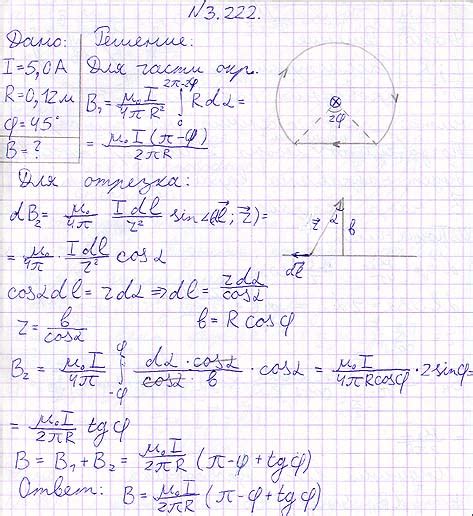 №3.222.
Дано: Решение:
I=5,0А Для части окр.
R=0,12м B₁ = μ₀I/4πR² ∫₀^(2π-2φ) Rdα =
φ=45° = μ₀I(π-φ)/2πR
B=?
2φ
Для отрезка:
dB₂ = μ₀/4π Idl/r² sin∠(dl⃗; r⃗) =
= μ₀/4π · Idl/r² cosα
r α b
dl⃗
cosαdl = rdα ⇒ dl = rdα/cosα
r = b/cosα b = Rcosφ
B₂ = μ₀I/4π ∫₋φ^φ dα·cosα/cosα·b · cosα = μ₀I/4πRcosφ · 2sinφ=
= μ₀I/2πR tgφ
B = B₁ + B₂ = μ₀I/2πR (π-φ+tgφ)
Ответ: B = μ₀I/2πR (π-φ+tgφ)